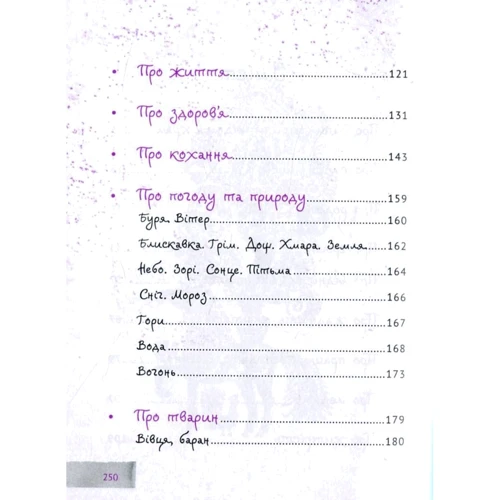 • Про життя 121
• Про здоров'я 131
• Про кохання 143
• Про погоду та природу 159
Буря. Вітер 160
Блискавка. Грім. Дощ. Хмара. Земля 162
Небо. Зорі. Сонце. Пітьма 164
Сніг. Мороз 166
Гори 167
Вода 168
Вогонь 173
• Про тварин 179
Вівця, баран 180
250